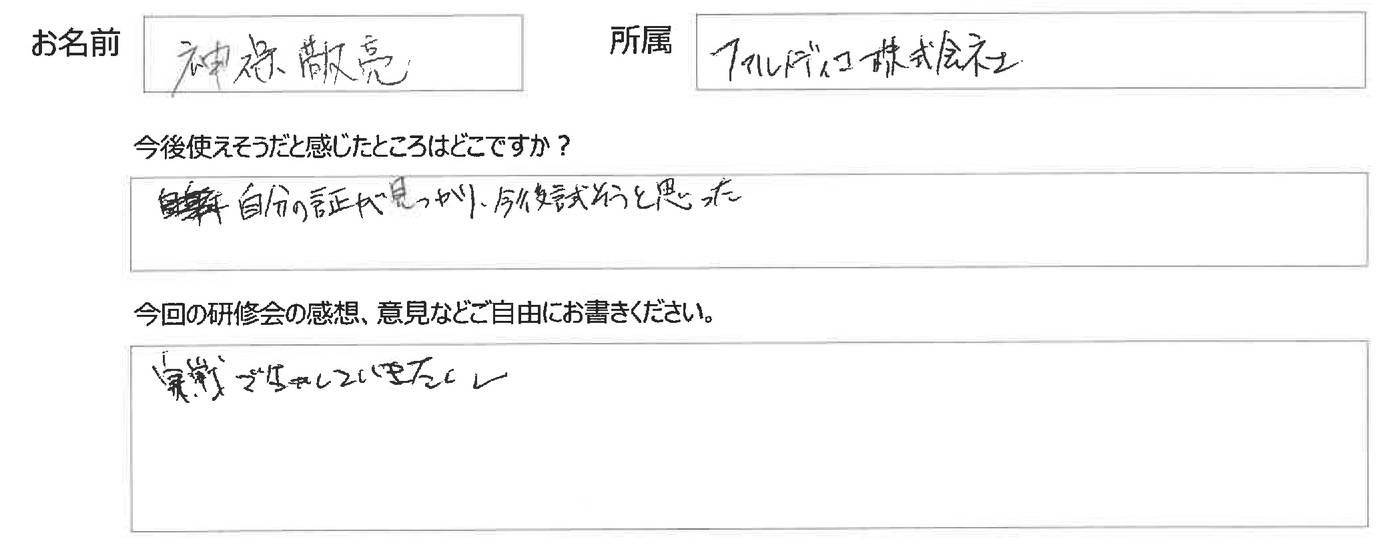 お名前 神 亮 所属 アルメディコ株式会社
今後使えそうだと感じたところはどこですか？
自分の証が見つかり、今後試そうと思った
今回の研修会の感想、意見などご自由にお書きください。
実戦でしていきたい